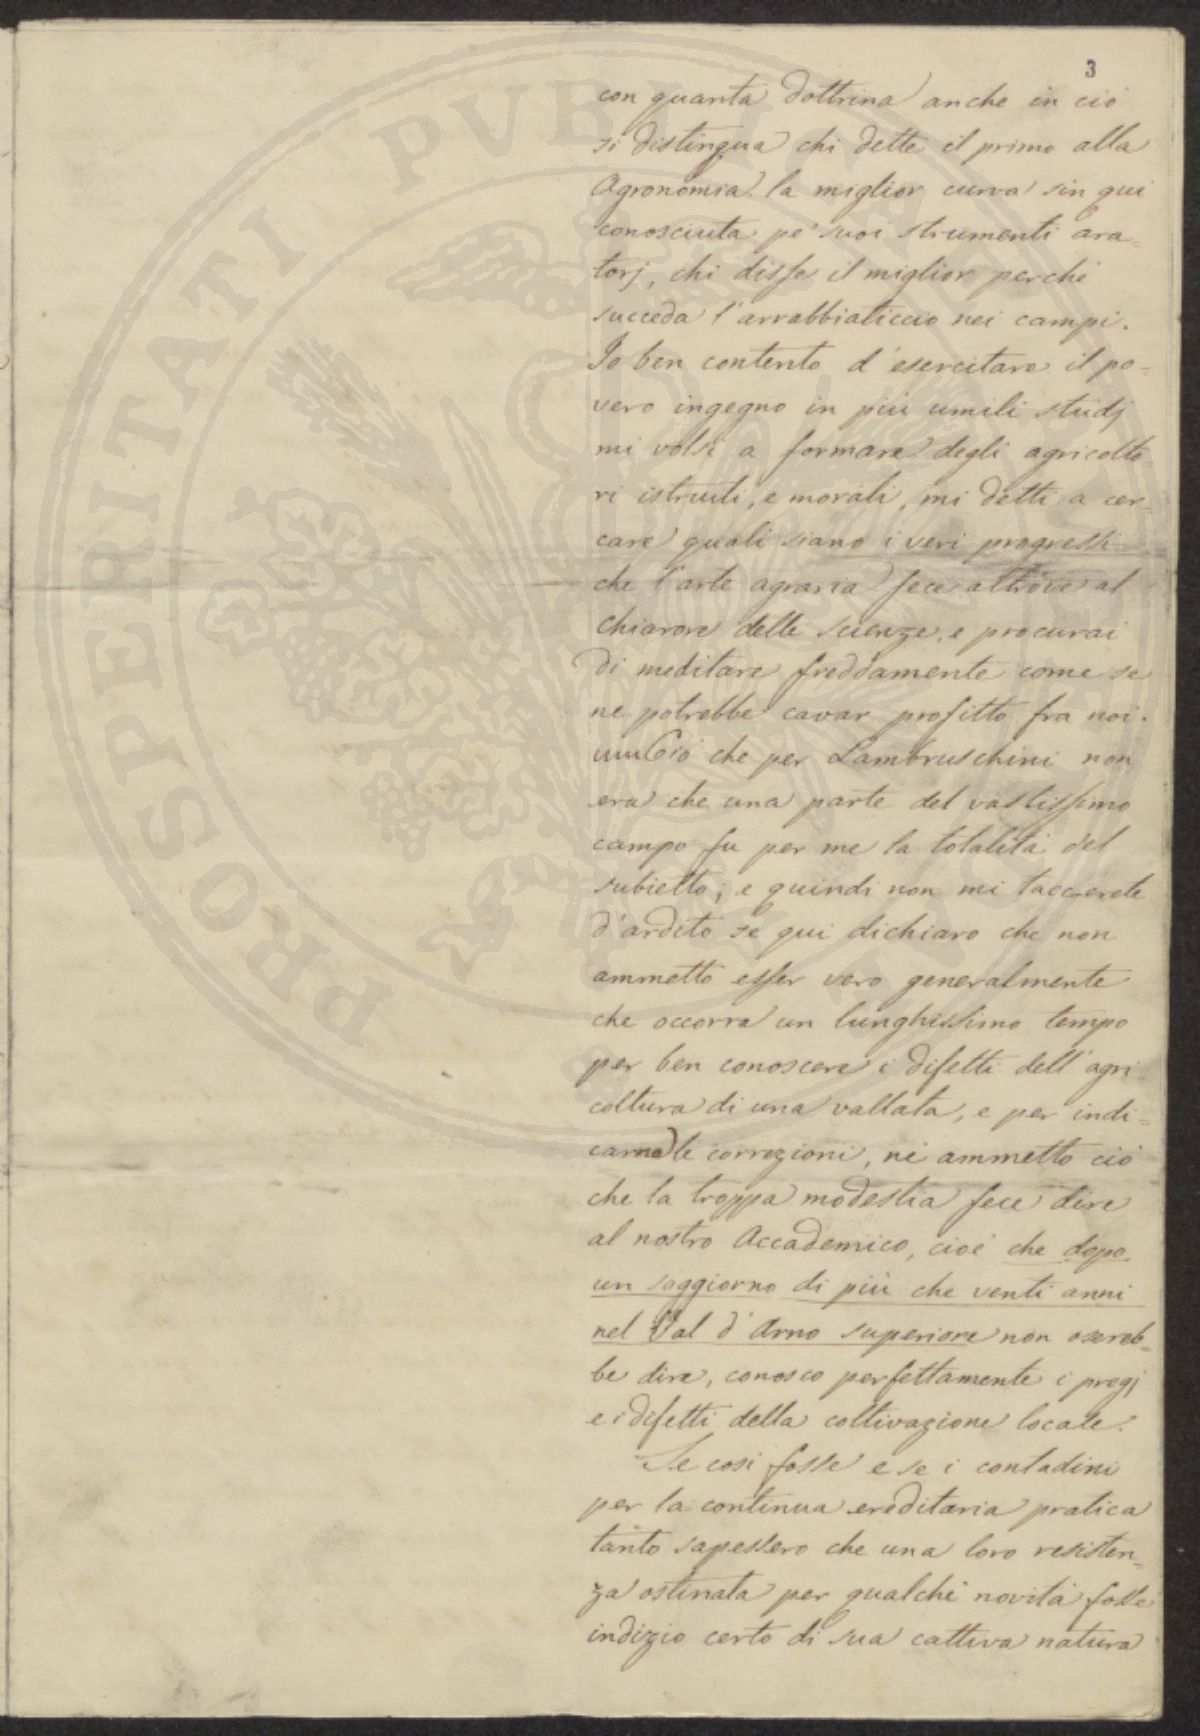 PROSPERITATI PUBLICAE
3
con quanta dottrina anche in ciò
si distingua chi dette il primo alla
Agronomia la miglior curva sin qui
conosciuta pe' suoi strumenti ara=
torj, chi disse il miglior perchè
succeda l'arrabbiaticcio nei campi.
Io ben contento d'esercitare il po=
vero ingegno in più umili studj
mi volsi a formare degli agricolto=
ri istruiti, e morali, mi detti a cer=
care quali siano i veri progressi
che l'arte agraria fece altrove al
chiarore delle scienze, e procurai
di meditare freddamente come se
ne potrebbe cavar profitto fra noi.
Ciò che per Lambruschini non
era che una parte del vastissimo
campo fu per me la totalità del
subietto; e quindi non mi taccerete
d'ardito se qui dichiaro che non
ammetto esser vero generalmente
che occorra un lunghissimo tempo
per ben conoscere i difetti dell'agri
coltura di una vallata, e per indi=
carne le correzioni, nè ammetto ciò
che la troppa modestia fece dire
al nostro Accademico, cioè che dopo
un soggiorno di più che venti anni
nel Val d'Arno superiore non osereb=
be dire, conosco perfettamente i pregj
e i difetti della coltivazione locale.
Se così fosse e se i contadini
per la continua ereditaria pratica
tanto sapessero che una loro resisten=
za ostinata per qualche novità fosse
indizio certo di sua cattiva natura